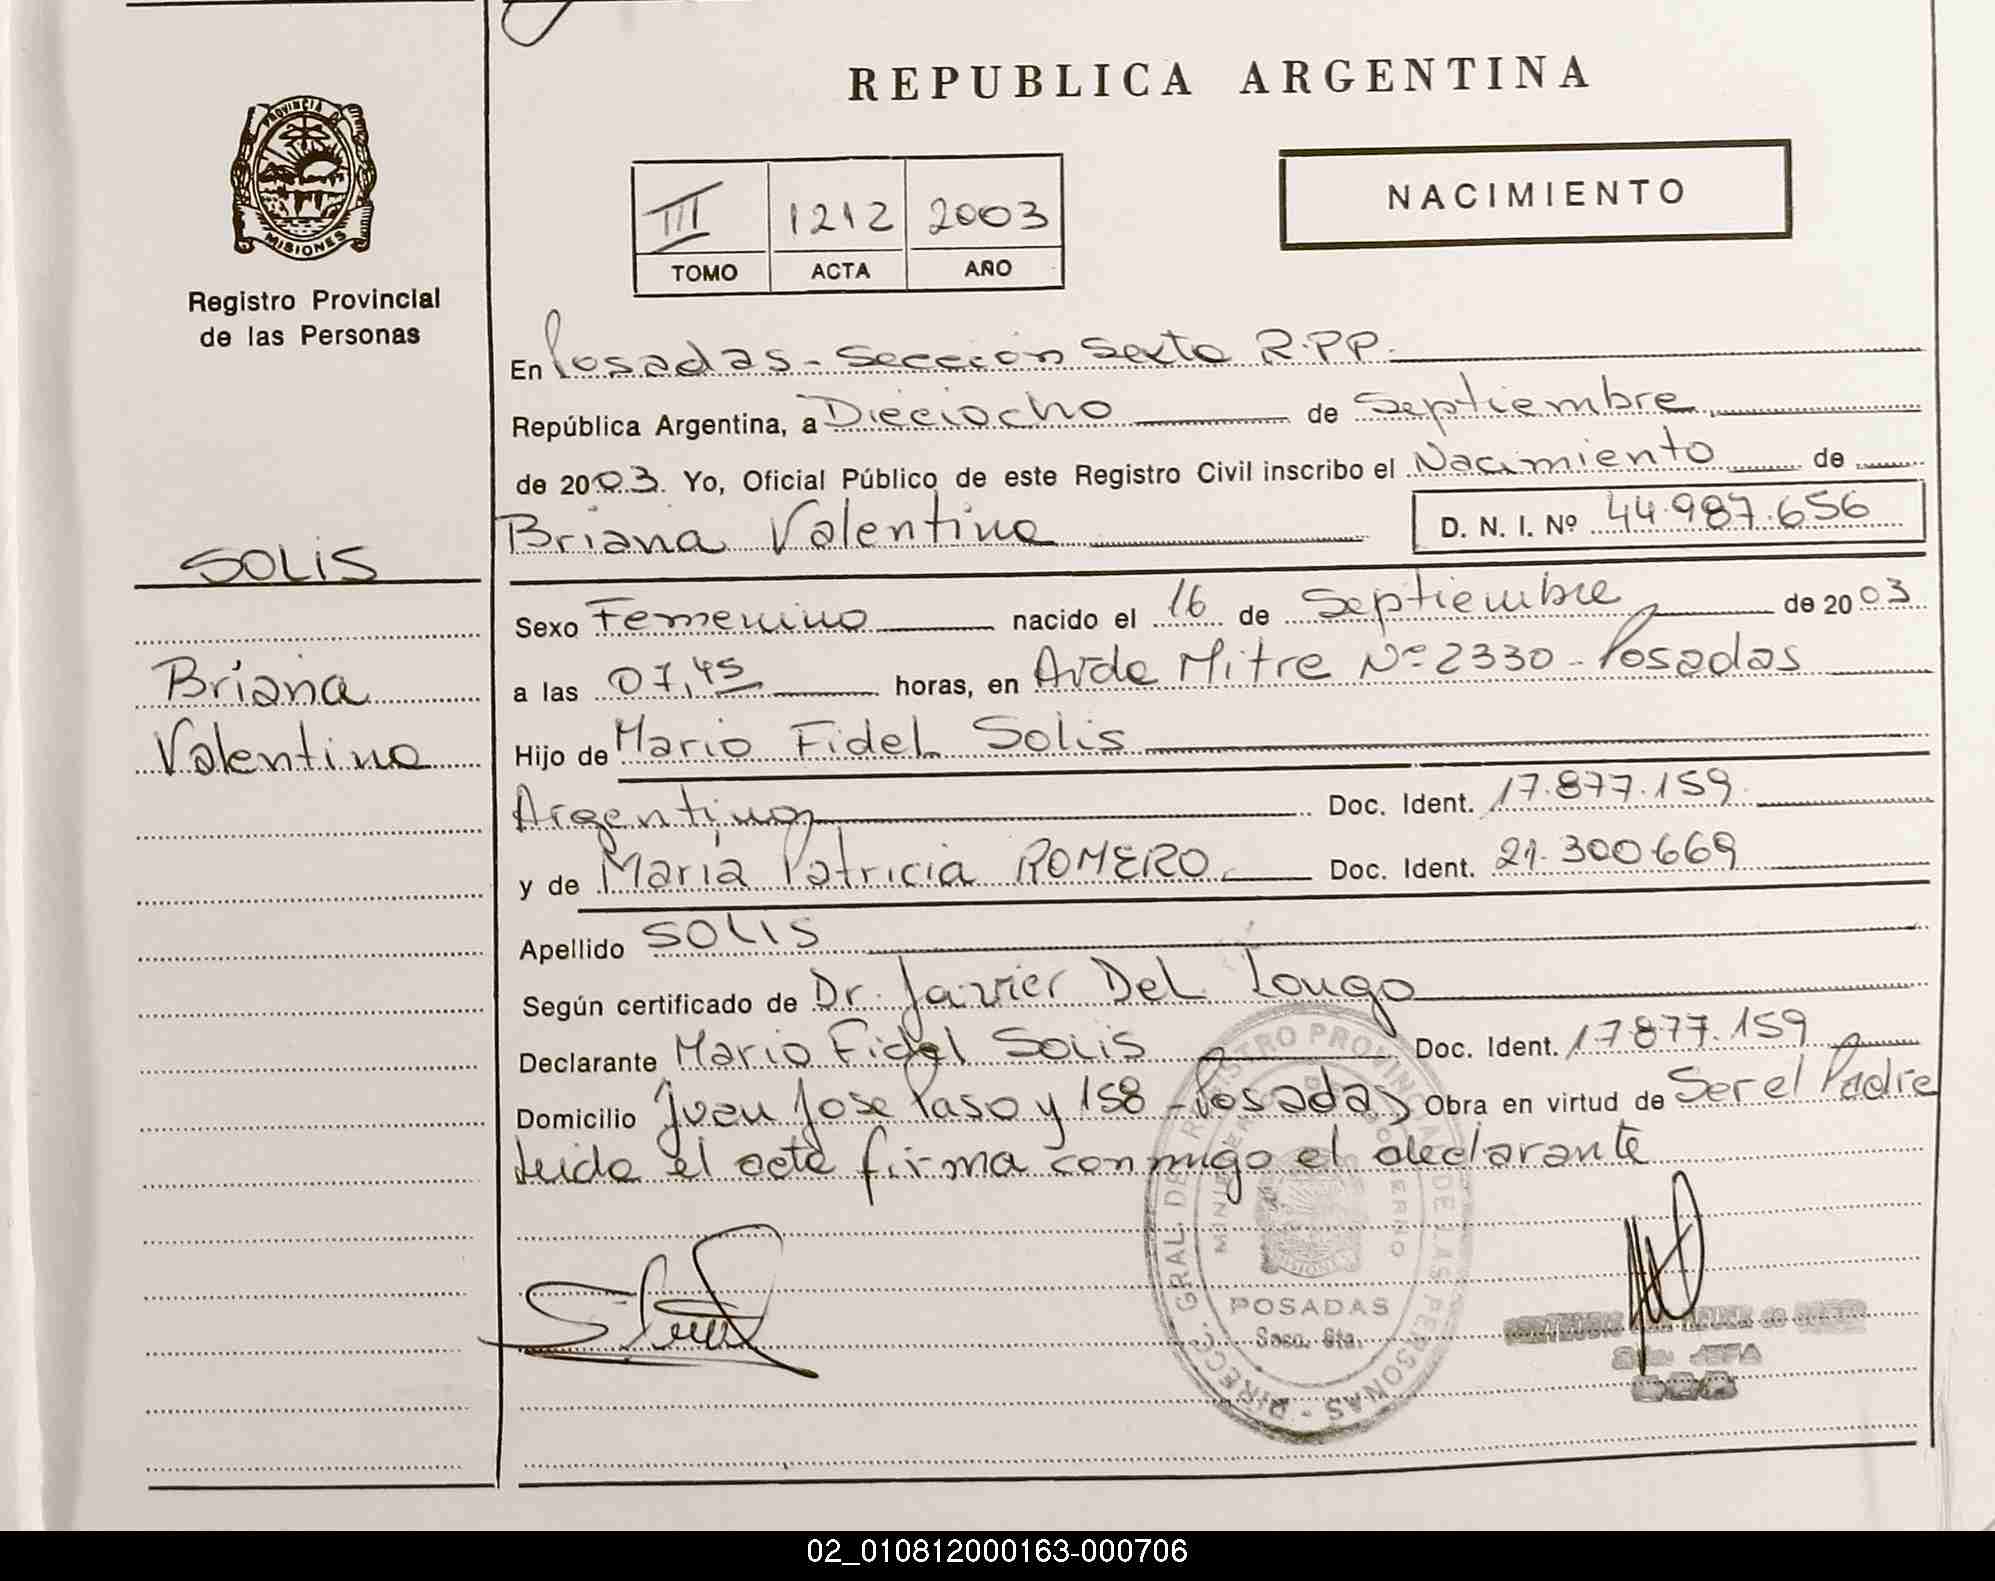 REPUBLICA ARGENTINA
PROVINCIA DE
MISIONES
Registro Provincial
de las Personas
NACIMIENTO
III 1212 2003
TOMO ACTA AÑO
En Posadas - Sección Sexta R.P.P.
República Argentina, a Dieciocho de Septiembre
de 2003. Yo, Oficial Público de este Registro Civil inscribo el Nacimiento de
Briana Valentina D. N. I. Nº 44.987.656
SOLIS
Briana
Valentina
Sexo Femenino nacido el 16 de Septiembre de 2003
a las 07,45 horas, en Avda Mitre Nº 2330 - Posadas
Hijo de Mario Fidel Solis
Argentino Doc. Ident. 17.877.159
y de María Patricia ROMERO Doc. Ident. 21.300.669
Apellido SOLIS
Según certificado de Dr. Javier Del Longo
Declarante Mario Fidel Solis Doc. Ident. 17.877.159
Domicilio Juan Jose Paso y 158 - Posadas Obra en virtud de Ser el Padre
Leida el acta firma conmigo el declarante
DIRECC. GRAL. DE REGISTRO PROVINCIAL DE LAS PERSONAS
MINISTERIO DE GOBIERNO
MISIONES
POSADAS
Secc. 6ta.
JEFA
02_010812000163-000706